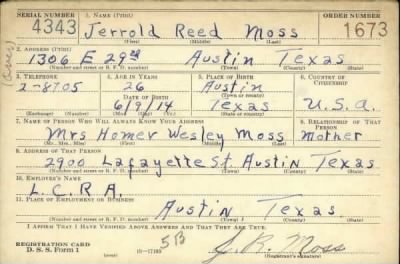 SERIAL NUMBER 1. NAME (Print) ORDER NUMBER
4343 Jerrold Reed Moss 1673
(First) (Middle) (Last)
2. ADDRESS (Print)
1306 E 29th Austin Texas
(Number and street or R. F. D. number) (Town) (County) (State)
3. TELEPHONE 4. AGE IN YEARS 5. PLACE OF BIRTH 6. COUNTRY OF CITIZENSHIP
2-8705 26 Austin
DATE OF BIRTH (Town or county)
6/9/14 Texas U.S.A.
(Exchange) (Number) (Mo.) (Day) (Yr.) (State or country)
7. NAME OF PERSON WHO WILL ALWAYS KNOW YOUR ADDRESS 8. RELATIONSHIP OF THAT PERSON
Mrs Homer Wesley Moss Mother
(Mr., Mrs., Miss) (First) (Middle) (Last)
9. ADDRESS OF THAT PERSON
2900 Lafayette St. Austin Texas
(Number and street or R. F. D. number) (Town) (County) (State)
10. EMPLOYER'S NAME
L.C.R.A.
11. PLACE OF EMPLOYMENT OR BUSINESS
Austin Texas
(Number and street or R. F. D. number) (Town) (County) (State)
I AFFIRM THAT I HAVE VERIFIED ABOVE ANSWERS AND THAT THEY ARE TRUE.
REGISTRATION CARD 5B J. R. Moss
D. S. S. Form 1 (Registrant's signature)